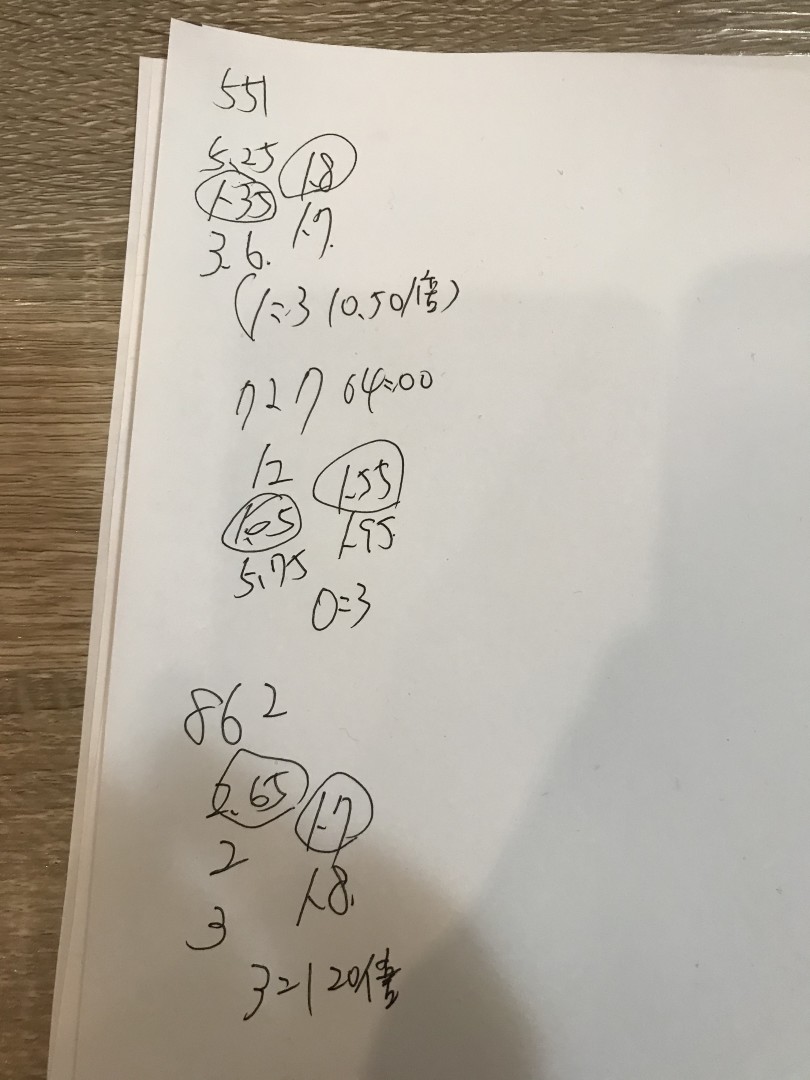 551
5.25 1.8
1.35 1.7.
3.6.
(1=3 10.50/倍)
727 04:00
12 1.55
1.05 1.95.
5.75
0=3
862
2.65 1.7
2 1.8.
3
3=1 20倍